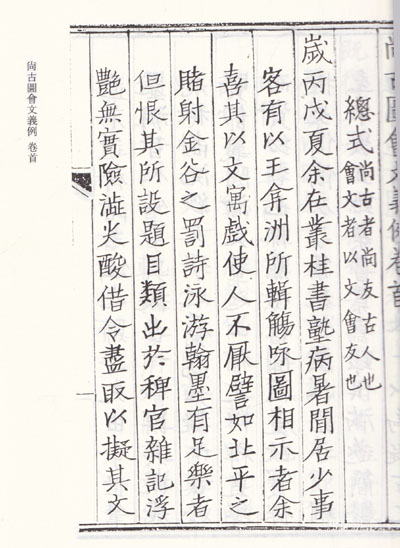 尚古圖會文義例卷首
總式尚古者尚友古人也
會文者以文會友也
歲丙戊夏余在叢桂書塾病暑閒居少事
客有以王弇洲所輯觴咏圖相示者余
喜其以文寓戲使人不厭譬如北平之
賭射金谷之罰詩泳游翰墨有足樂者
但恨其所設題目類出於稗官雜記浮
艷無實險澁尖酸借令盡取以擬其文
尙古圖會文義例 卷首
一